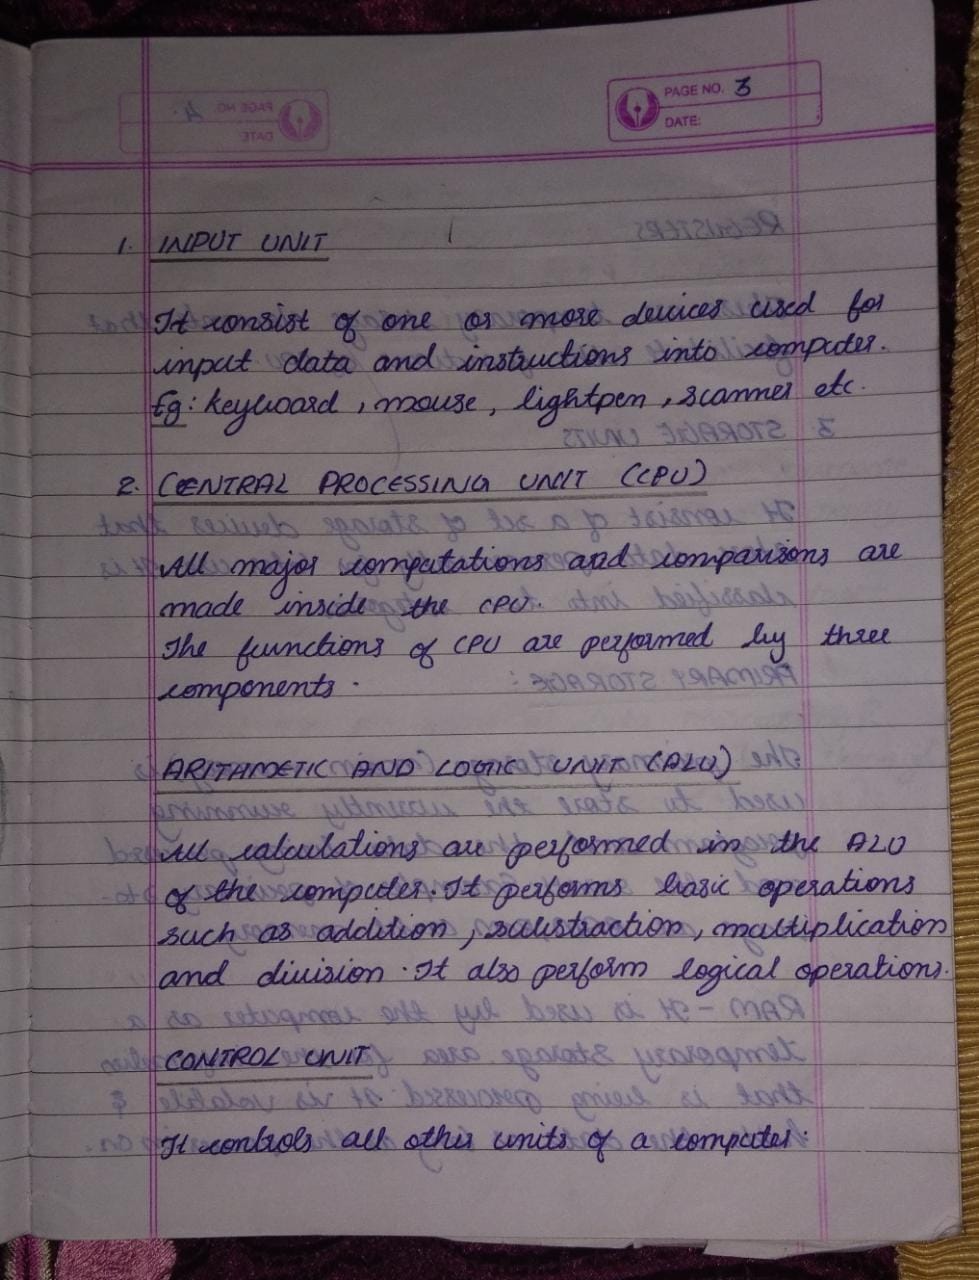 PAGE NO. 3
DATE:
1. INPUT UNIT
It consist of one or more devices used for
input data and instructions into computer.
Eg: keyboard, mouse, lightpen, scanner etc.
2. CENTRAL PROCESSING UNIT (CPU)
All major computations and comparisons are
made inside the CPU.
The functions of CPU are performed by three
components.
ARITAMETIC AND LOGIC UNIT (ALU)
All calculations are performed in the ALU
of the computer. It performs basic operations
such as addition, substraction, multiplication
and division. It also perform logical operations.
CONTROL UNIT
It controls all other units of a computer.